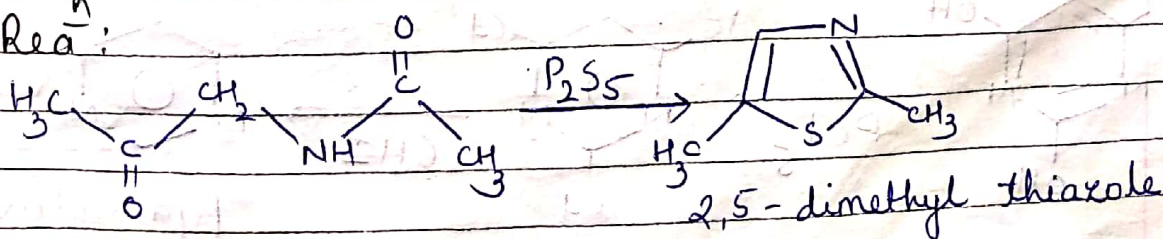 Rea^n:
O
H3C CH2 C P2S5 N
C NH CH3 H3C S CH3
O
2,5-dimethyl thiazole